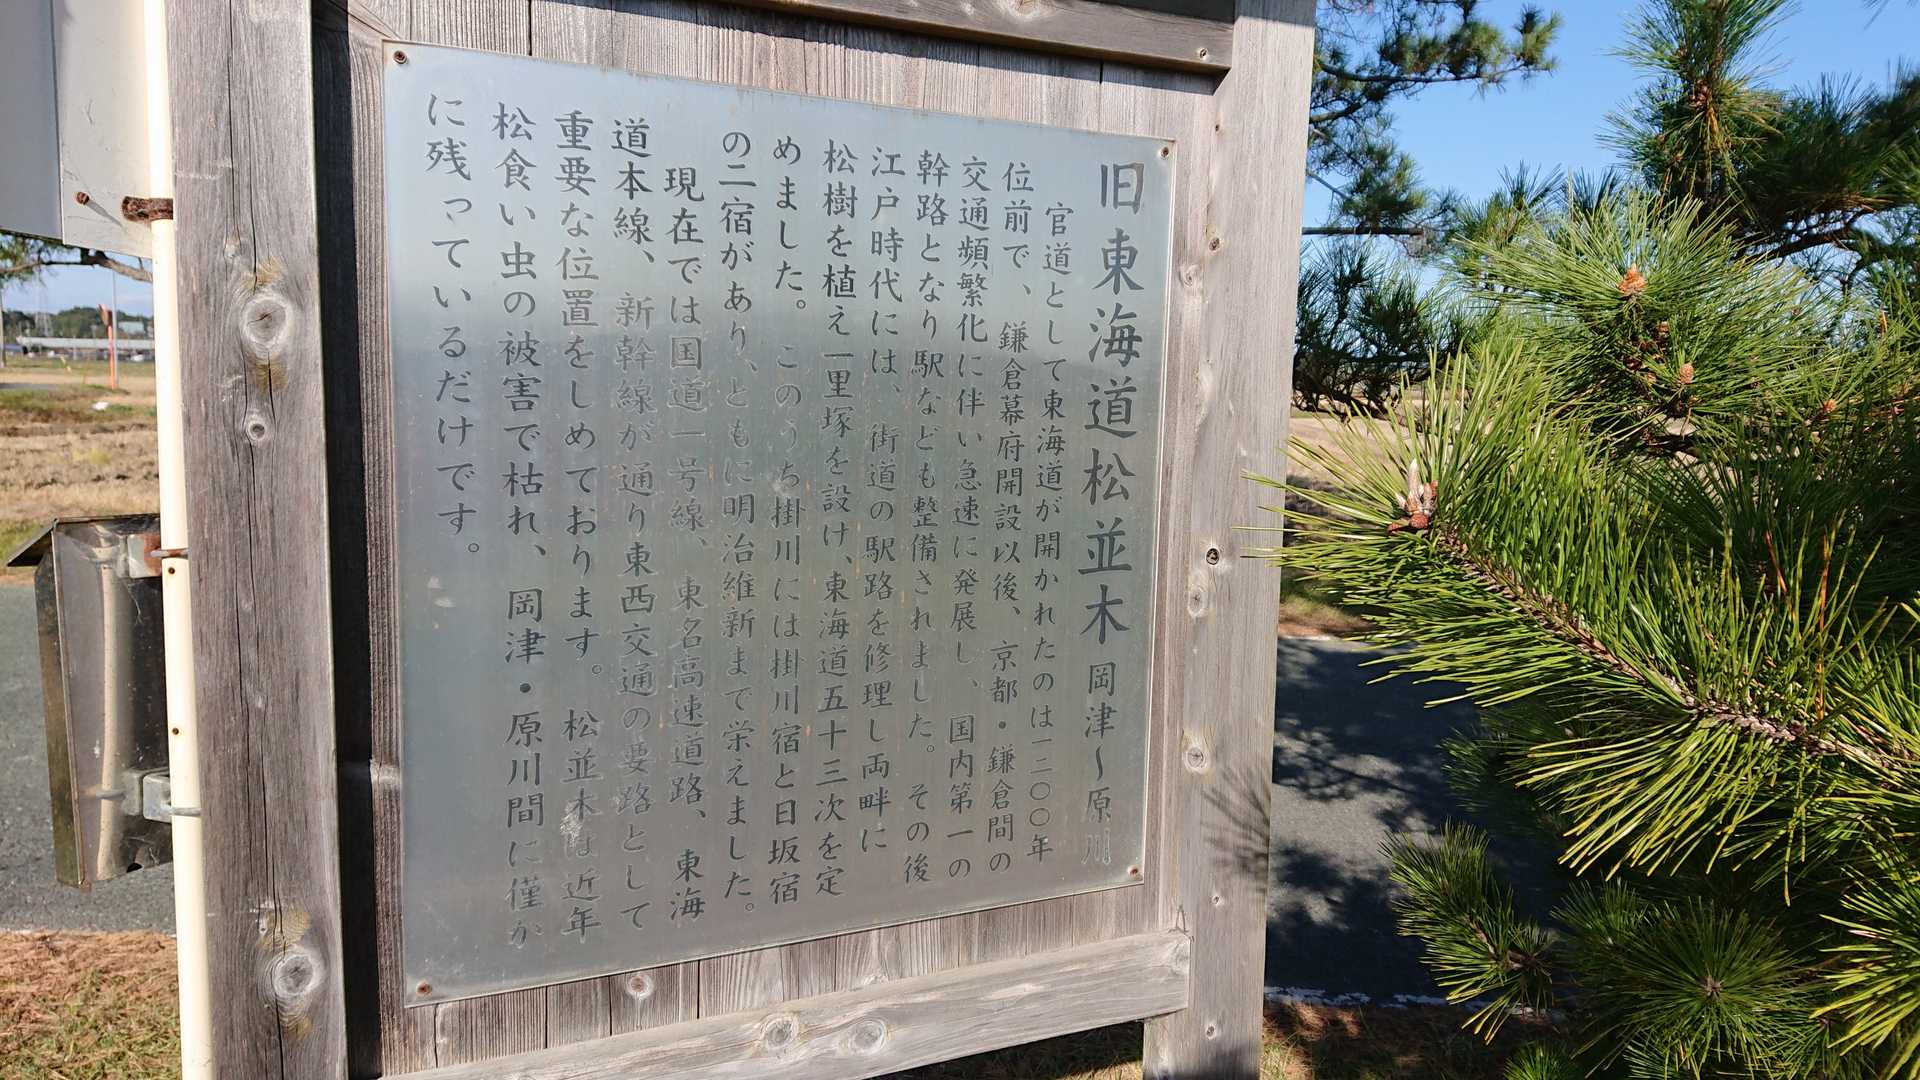 旧東海道松並木 岡津～原川
官道として東海道が開かれたのは一二〇〇年
位前で、鎌倉幕府開設以後、京都・鎌倉間の
交通頻繁化に伴い急速に発展し、国内第一の
幹路となり駅なども整備されました。その後
江戸時代には、街道の駅路を修理し両畔に
松樹を植え一里塚を設け、東海道五十三次を定
めました。このうち掛川には掛川宿と日坂宿
の二宿があり、ともに明治維新まで栄えました。
現在では国道一号線、東名高速道路、東海
道本線、新幹線が通り東西交通の要路として
重要な位置をしめております。松並木は近年
松食い虫の被害で枯れ、岡津・原川間に僅か
に残っているだけです。